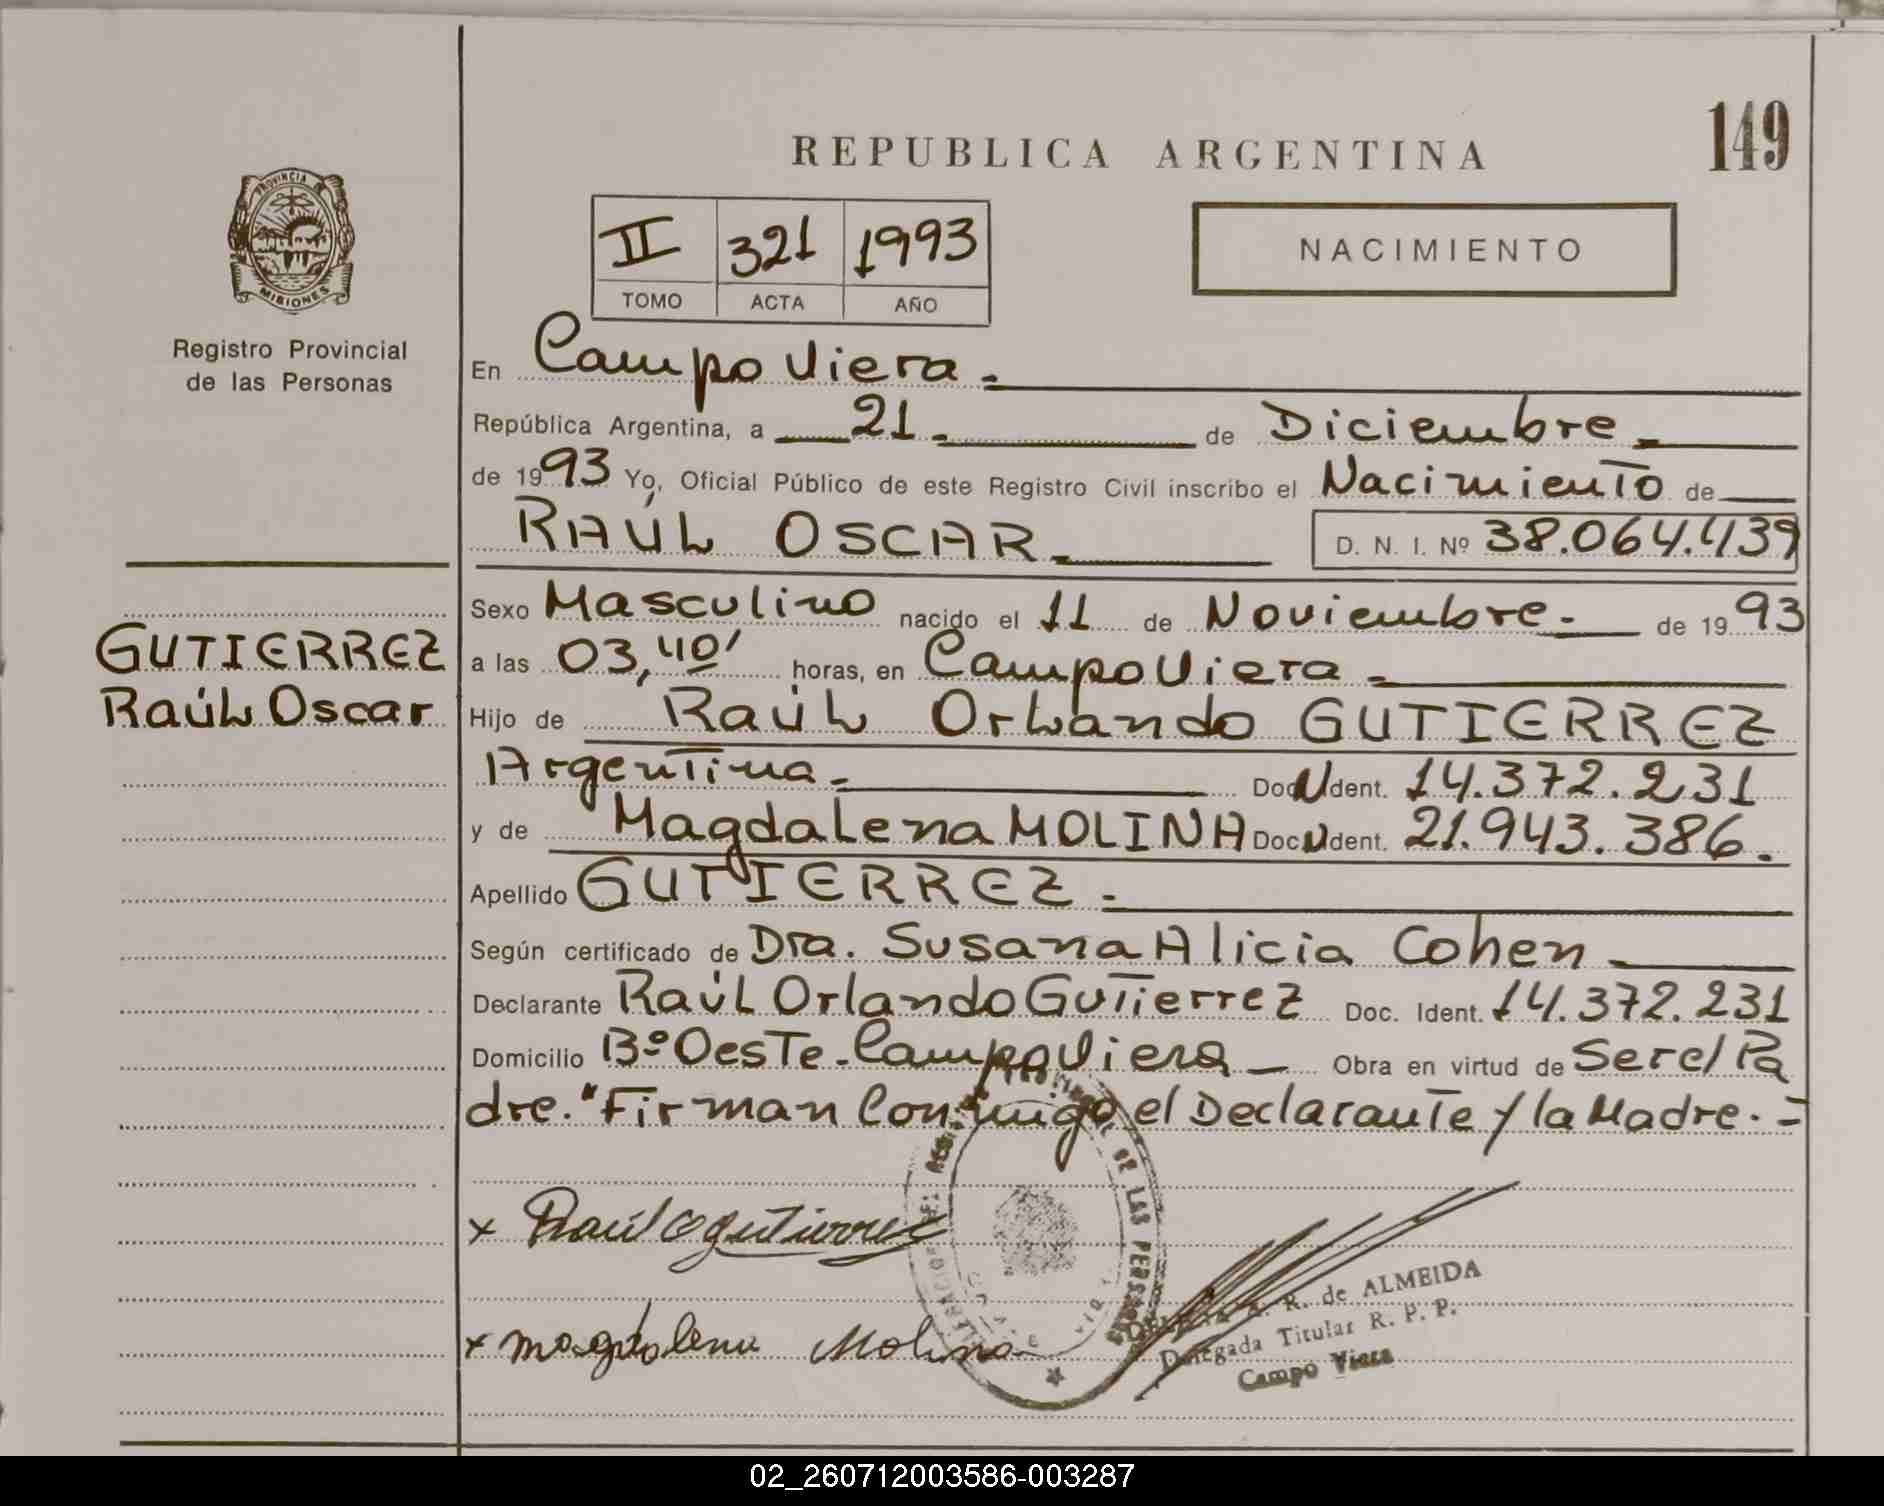 149
REPUBLICA ARGENTINA
PROVINCIA DE
MISIONES
Registro Provincial
de las Personas
II 321 1993
TOMO ACTA AÑO
NACIMIENTO
En Campo Viera.-
República Argentina, a 21.- de Diciembre.-
de 1993 Yo, Oficial Público de este Registro Civil inscribo el Nacimiento de
RAÚL OSCAR.- D. N. I. Nº 38.064.439
GUTIERREZ
Raúl Oscar
Sexo Masculino nacido el 11 de Noviembre.- de 1993
a las 03,40' horas, en Campo Viera.-
Hijo de Raúl Orlando GUTIERREZ
Argentina.- Doc. Ident. 14.372.231
y de Magdalena MOLINA Doc. Ident. 21.943.386.
Apellido GUTIERREZ.-
Según certificado de Dra. Susana Alicia Cohen.-
Declarante Raúl Orlando Gutierrez Doc. Ident. 14.372.231
Domicilio Bº Oeste-Campo Viera- Obra en virtud de Ser el Pa
dre."Firman Conmigo el Declarante y la Madre.-
x Raúl O Gutierrez
x magdalena Molina
DE LAS PERSONAS
R. de ALMEIDA
Delegada Titular R. P. P.
Campo Viera
02_260712003586-003287